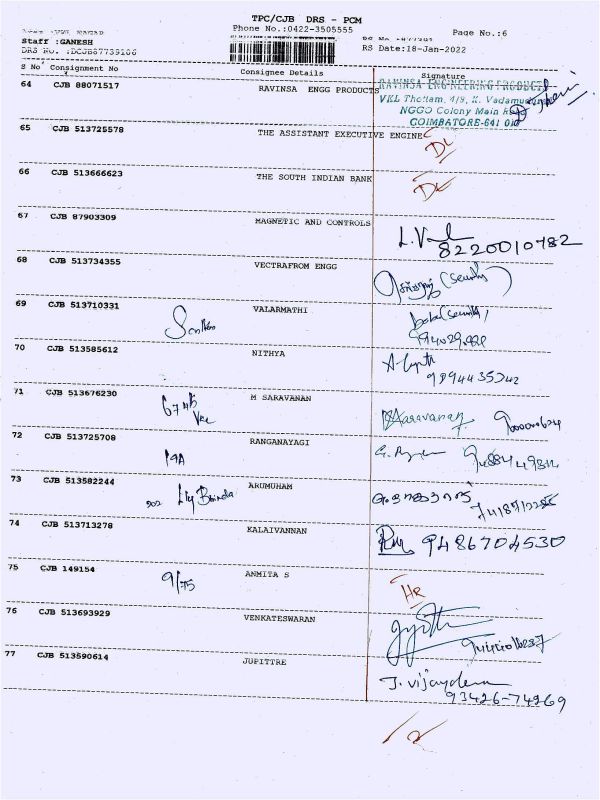 TPC/CJB DRS - PCM
Phone No.:0422-3505555
Page No.:6
Staff :GANESH
DRS No. :DCJB87739106
RS Date:18-Jan-2022
S No Consignment No Consignee Details Signature
64 CJB 88071517 RAVINSA ENGG PRODUCTS
RAVINSA ENGINEERING PRODUCTS
VKL Thottam, 4/9, K. Vadamadurai
NGGO Colony Main Road
COIMBATORE-641 0
65 CJB 513725578 THE ASSISTANT EXECUTIVE ENGINE
DL
66 CJB 513666623 THE SOUTH INDIAN BANK
DL
67 CJB 87903309 MAGNETIC AND CONTROLS
8220010782
68 CJB 513734355 VECTRAFROM ENGG
(Security)
69 CJB 513710331 VALARMATHI
(Security)
70 CJB 513585612 NITHYA
9894435242
71 CJB 513676230 M SARAVANAN
Saravanan
72 CJB 513725708 RANGANAYAGI
19A
73 CJB 513582244 ARUMUHAM
202
74 CJB 513713278 KALAIVANNAN
9486704530
75 CJB 149154 ANMITA S
9/75 HR
76 CJB 513693929 VENKATESWARAN
77 CJB 513590614 JUPITTRE
J. vijay
93426-74969